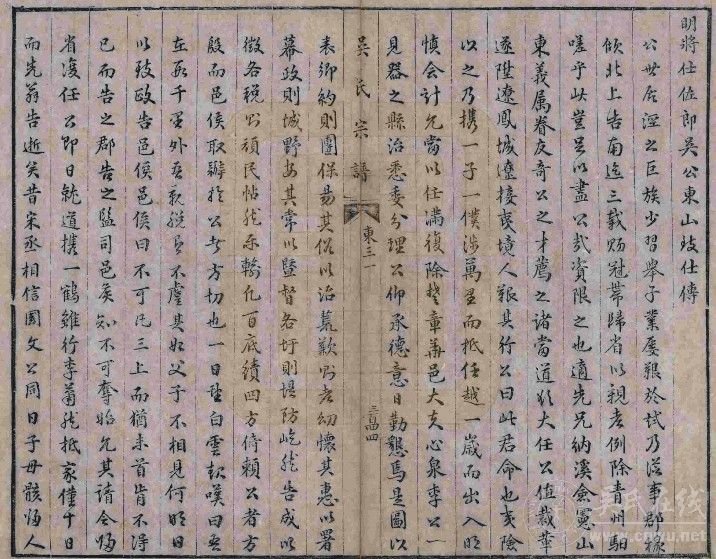 明將仕佐郎吳公東山致仕傳
公世居涇之巨族少習舉子業屢艱於試乃從事郡掾
傾北上告南迄三載賜冠帶歸省以親老例除青州駟
嗟乎此豈足以盡公哉資限之也適先兄納溪僉憲山
東義属眷友奇公之才薦之諸當道以大任公值裁革
遂陞遼鳳城遼接夷境人艱其行公曰此君命也夷險
以之乃携一子一僕涉萬里而抵任越一歲而出入明
慎会計允當以任滿復除楚章華邑大夫心泉李公一
見器之縣治悉委分理公仰承德意日勤懇焉是圖以
吳氏宗譜
東三一
三四四
表鄉約則團保易其俗以治荒歉則老幼懷其惠以署
幕政則城野安其常以暨督各圩則堤防屹然告成以
徵各稅則頑民帖然樂輸凡百底績四方倚賴公者方
殷而邑侯取辦於公者方切也一日望白雲款嘆曰吾
在數千里外吾親旣百不虞其如父子不相見何明日
以致政告邑侯邑侯曰不可凡三上而猶未首肯不得
已而告之郡告之監司邑矦知不可奪始允其請令歸
省復任公即日就道携一鶴雖行李蕭然抵家僅十日
而先翁告逝矣昔宋丞相信國文公同日子母骸歸人
吳氏在线
www.cnwu.net